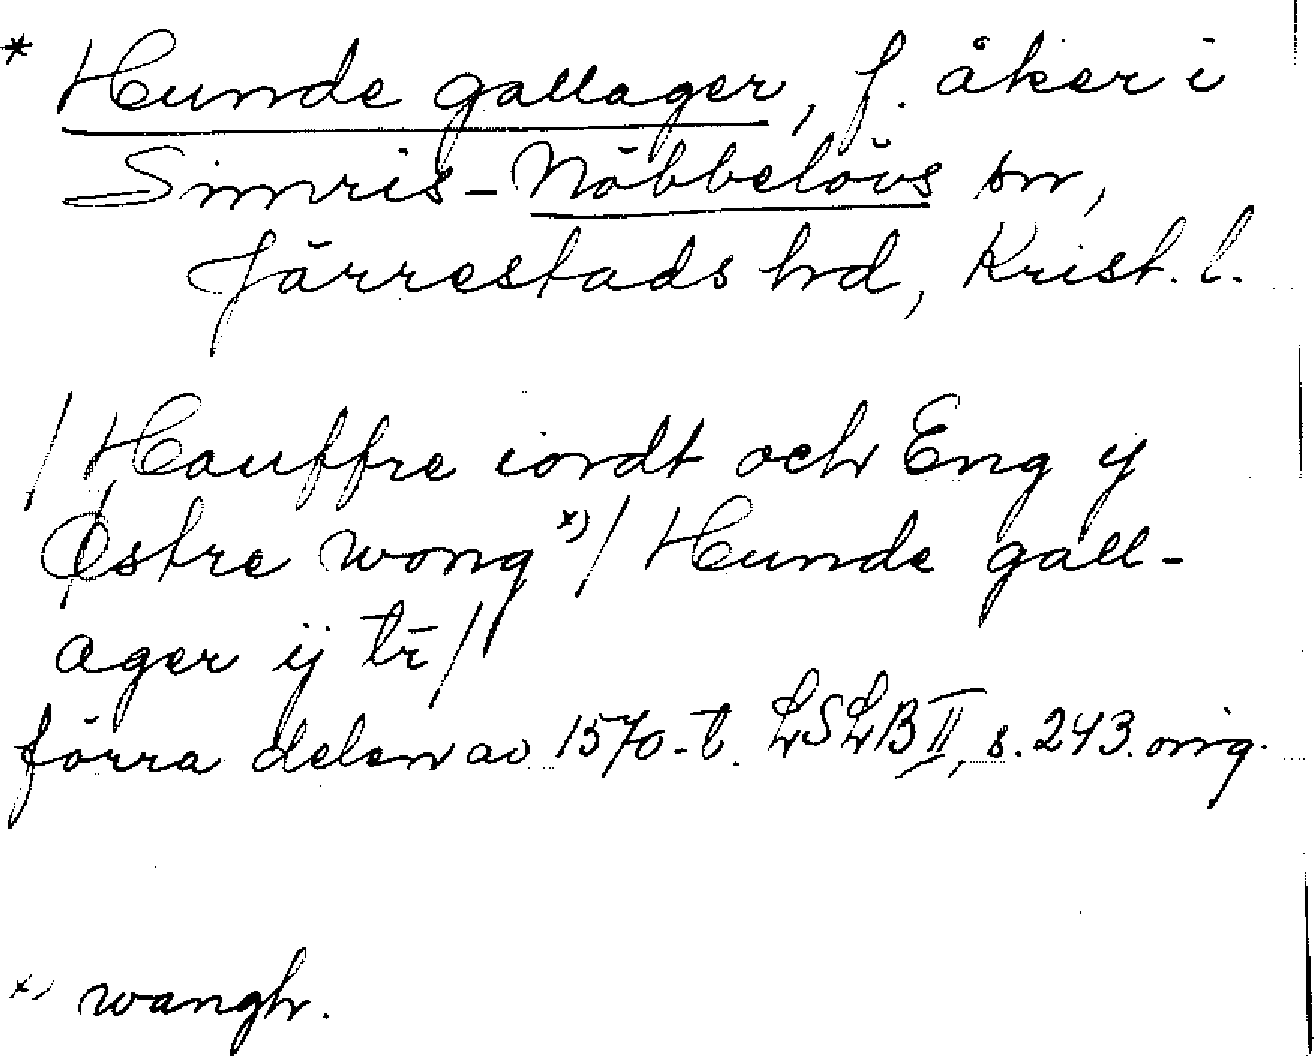 * Hunde gallager, f. åker i
Simris-Nöbbelövs sn,
Järrestads hd, Krist. l.
/Hauffre iordt och Eng y
Østre wong x)/ Hunde gall-
ager ij tr̄/
förra delen av 1570-t. LSLB II, s. 243. orig.
x) wangh.